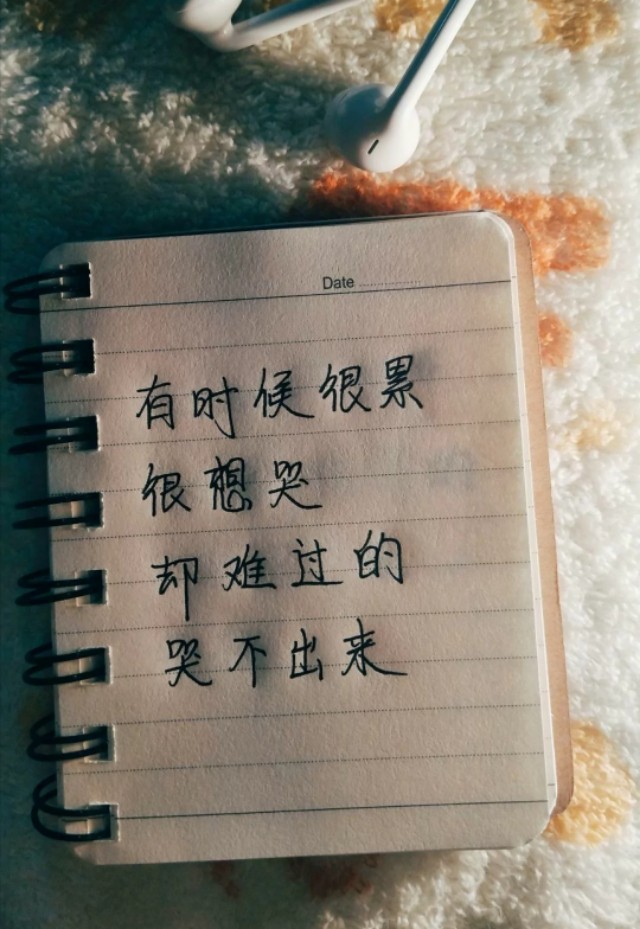 Date
有时候很累
很想哭
却难过的
哭不出来